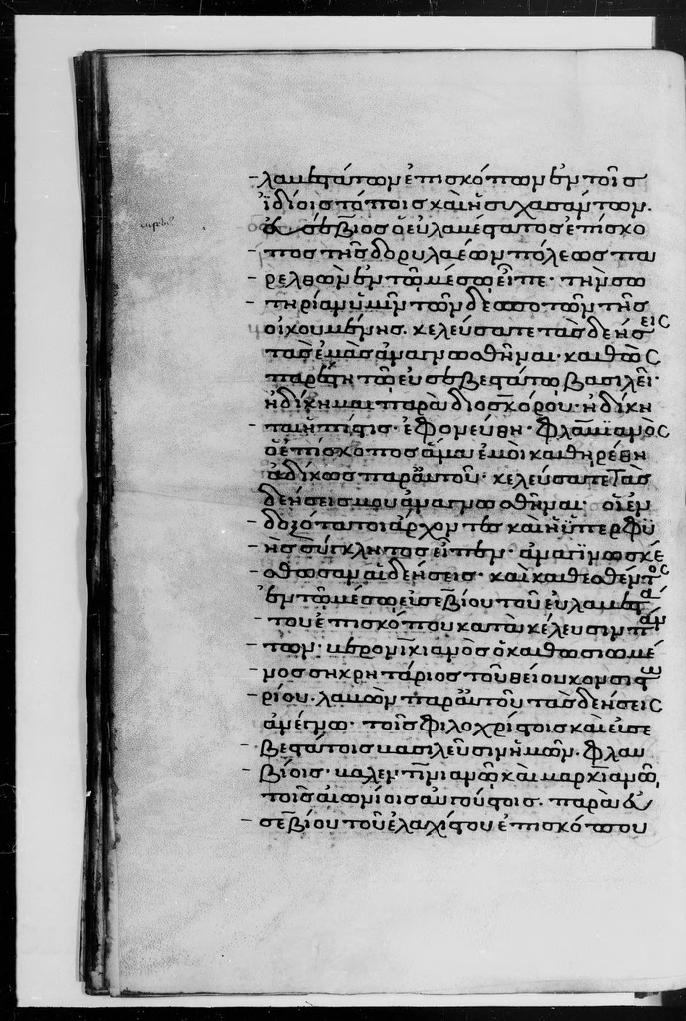 λαβεστάτων ἐπισκόπων ἐν τοῖς
ἰδίοις τόποις καὶ ἡσυχασάντων.
εὐσέβιος ὁ εὐλαβέστατος ἐπίσκο
πος τῆς δορυλαέων πόλεως πα
ρελθὼν ἐν τῷ μέσῳ εἶπε· τὴν σω
τηρίαν ὑμῖν τῶν δεσποτῶν τῆς
οἰκουμένης. κελεύσατε τὰς δεήσεις
τὰς ἐμὰς ἀναγνωσθῆναι· καθὼς
παρέστη τῷ εὐσεβεστάτῳ βασιλεῖ·
ἠδίκημαι παρὰ διοσκόρου· ἠδίκη
ται ἡ πίστις· ἐφονεύθη· φλαυϊανὸς
ὁ ἐπίσκοπος ἅμα ἐμοὶ καθηρέθη
ἀδίκως παρ' αὐτοῦ· κελεύσατε τὰς
δεήσεις μου ἀναγνωσθῆναι· οἱ ἐν
δοξότατοι ἄρχοντες καὶ ἡ ὑπερφυ
ὴς σύγκλητος εἶπεν· ἀναγινωσκέ
σθωσαν αἱ δεήσεις· καὶ καθεσθέντος
ἐν τῷ μέσῳ εὐσεβίου τοῦ εὐλαβεστά
του ἐπισκόπου κατὰ κέλευσιν πάν
των· βερονικιανὸς ὁ καθωσιωμέ
νος σηκρητάριος τοῦ θείου κονσιστω
ρίου. λαβὼν παρ' αὐτοῦ τὰς δεήσεις
ἀνέγνω· τοῖς φιλοχρίστοις καὶ εὐσε
βεστάτοις βασιλεῦσιν ἡμῶν. φλαυ
βίοις· βαλεντινιανῷ καὶ μαρκιανῷ,
τοῖς αἰωνίοις αὐγούστοις. παρὰ εὐ
σεβίου τοῦ ἐλαχίστου ἐπισκόπου